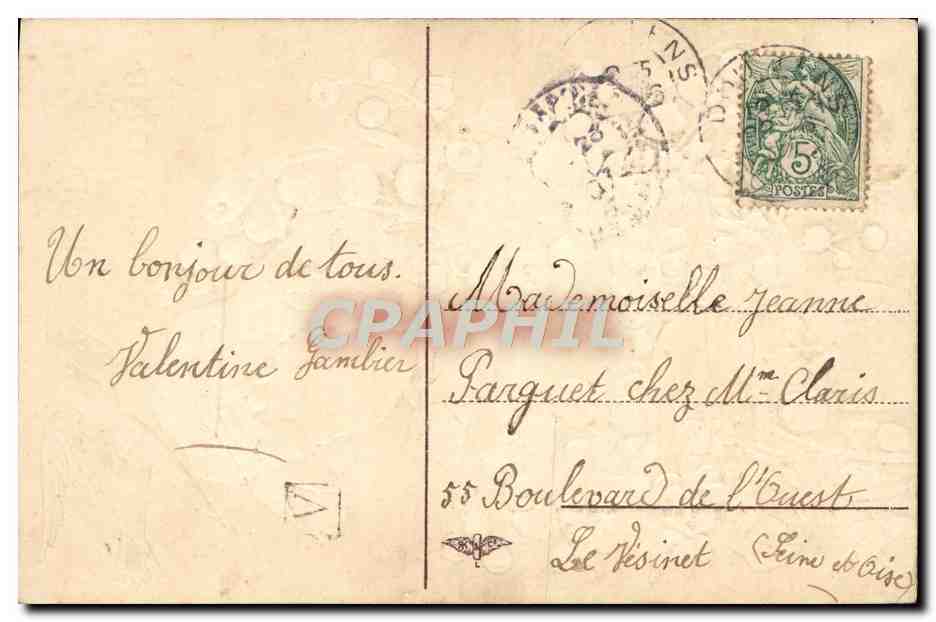 Un bonjour de tous.
Valentine Gambier
V
Mademoiselle Jeanne
Parquet chez Mm Claris
55 Boulevard de l'Ouest
Le Vésinet (Seine et Oise)
5
POSTES
CPAPHIL